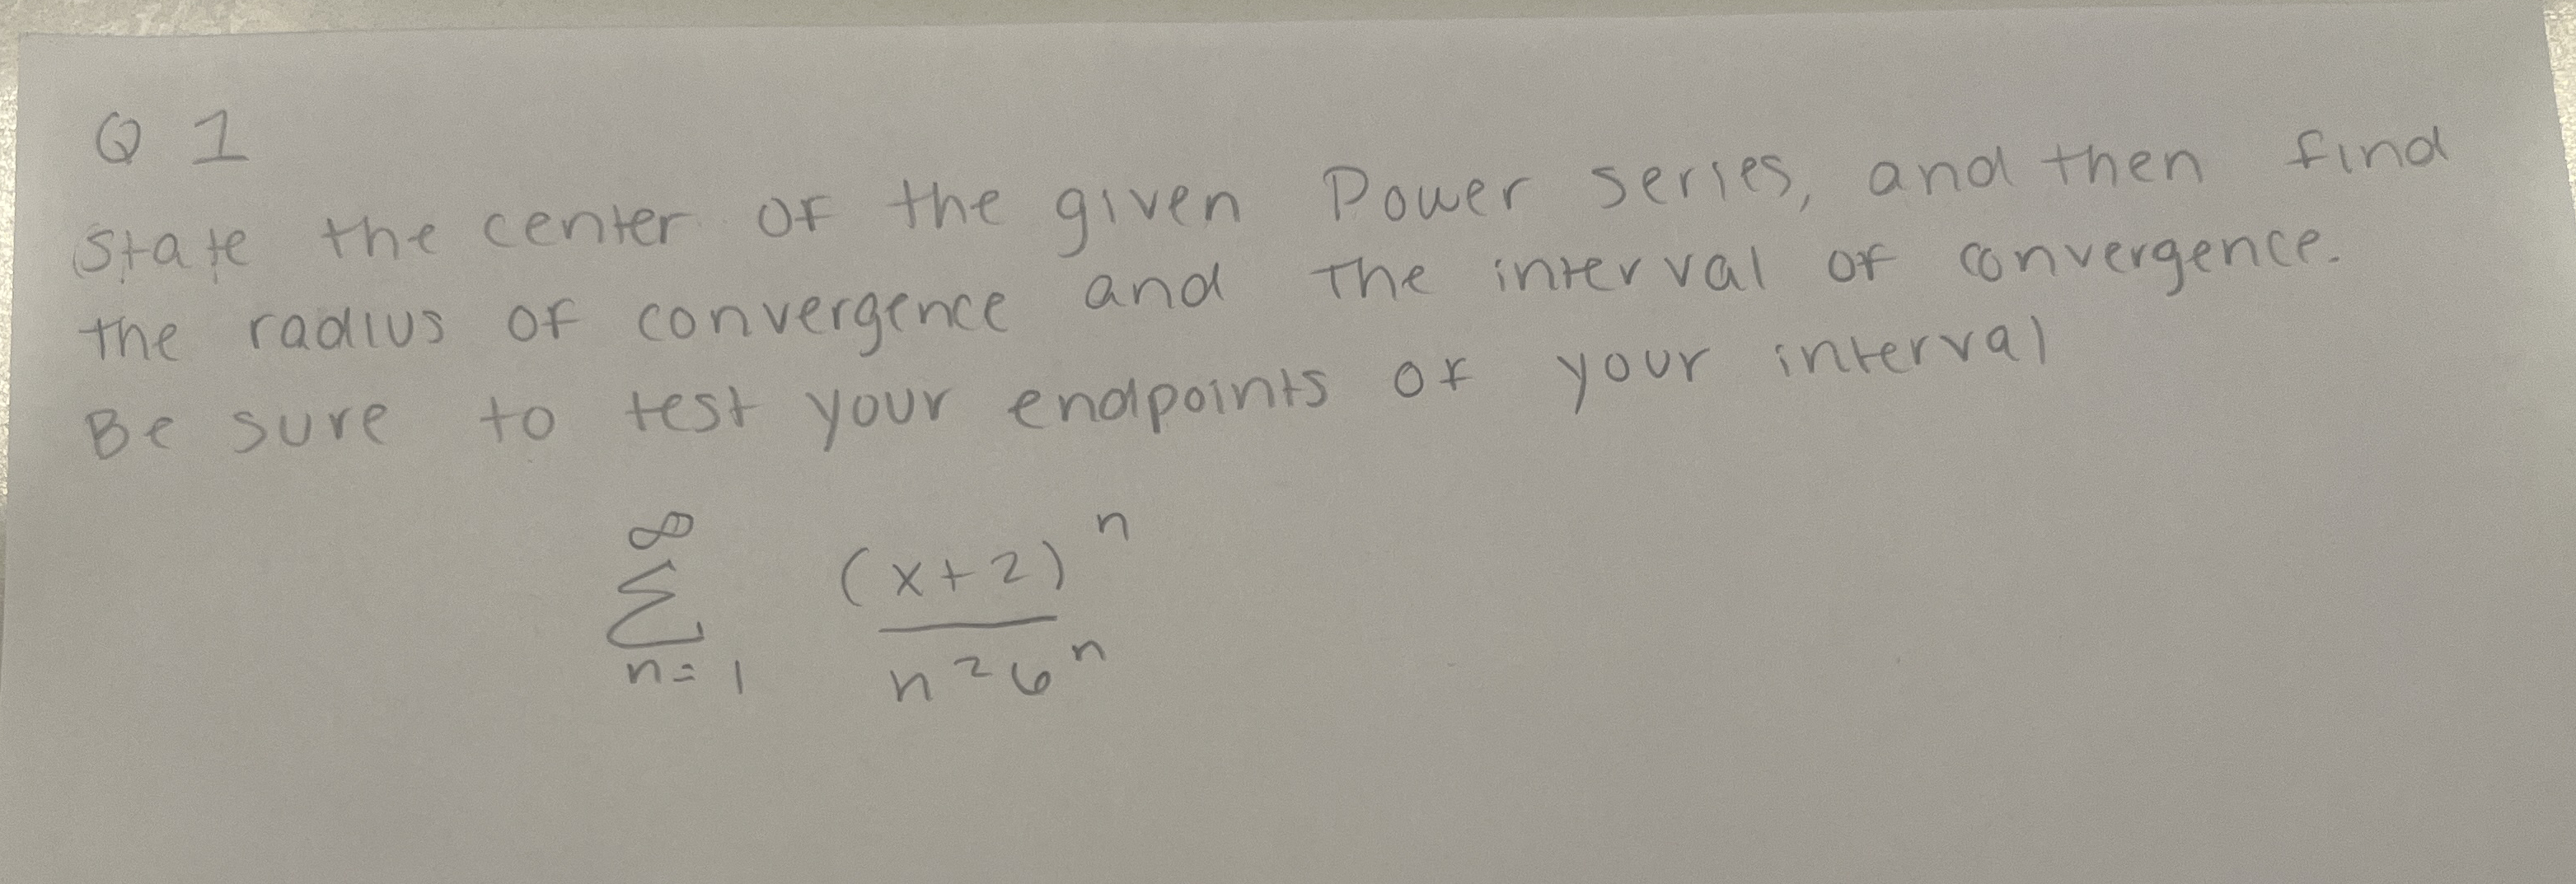 Q 1
State the center of the given Power series, and then find
the radius of convergence and the interval of convergence.
Be sure to test your endpoints of your interval
∞
Σ (x+2)^n / n^2 6^n
n=1